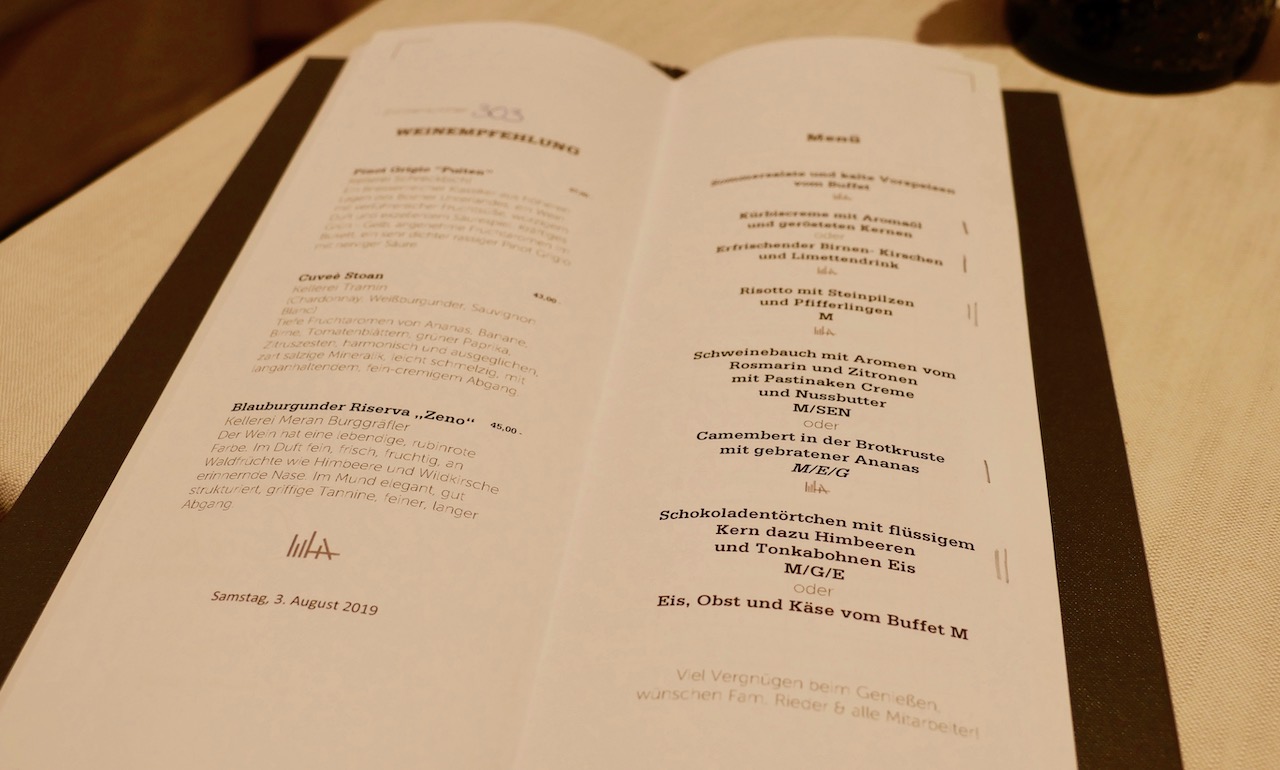 303
WEINEMPFEHLUNG
Pinot Grigio "Puiten"
Kellerei Schreckbichl
mit nerviger Säure.
Cuveè Stoan
43,00.-
Kellerei Tramin
(Chardonnay, Weißburgunder, Sauvignon
Blanc)
Tiefe Fruchtaromen von Ananas, Banane,
Birne, Tomatenblättern, grüner Paprika,
Zitruszesten, harmonisch und ausgeglichen,
zart salzige Mineralik, leicht schmelzig, mit
langanhaltendem, fein-cremigem Abgang.
Blauburgunder Riserva „Zeno“ 45,00.-
Kellerei Meran Burggräfler
Der Wein hat eine lebendige, rubinrote
Farbe. Im Duft fein, frisch, fruchtig, an
Waldfrüchte wie Himbeere und Wildkirsche
erinnernde Nase. Im Mund elegant, gut
strukturiert, griffige Tannine, feiner, langer
Abgang.
Samstag, 3. August 2019
Menü
Sommersalate und kalte Vorspeisen
vom Buffet
Kürbiscreme mit Aromaöl
und gerösteten Kernen
oder
Erfrischender Birnen- Kirschen
und Limettendrink
Risotto mit Steinpilzen
und Pfifferlingen
M
Schweinebauch mit Aromen vom
Rosmarin und Zitronen
mit Pastinaken Creme
und Nussbutter
M/SEN
oder
Camembert in der Brotkruste
mit gebratener Ananas
M/E/G
Schokoladentörtchen mit flüssigem
Kern dazu Himbeeren
und Tonkabohnen Eis
M/G/E
oder
Eis, Obst und Käse vom Buffet M
Viel Vergnügen beim Genießen,
wünschen Fam. Rieder & alle Mitarbeiter!